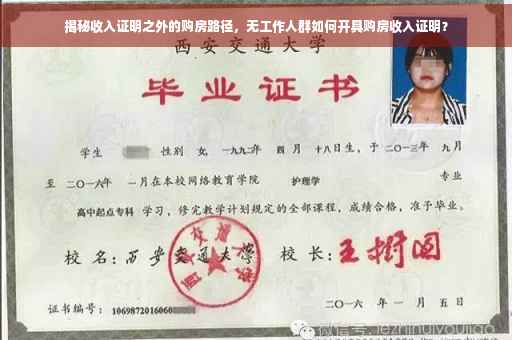 揭秘收入证明之外的购房路径，无工作人群如何开具购房收入证明？
西安交通大学
毕业证书
学生 性别 女, 一九九二年 四 月 十八日生, 于 二〇一三年 九 月
至 二〇一六年 一 月在本校网络教育学院 护理学 专业
高中起点专科 学习, 修完教学计划规定的全部课程, 成绩合格, 准予毕业。
校 名: 西安交通大学 校 长: 王树国
西安交通大学
证书编号: 1069872016060
二〇一六 年 一 月 五 日
微信号: jezhinuiyoujiao